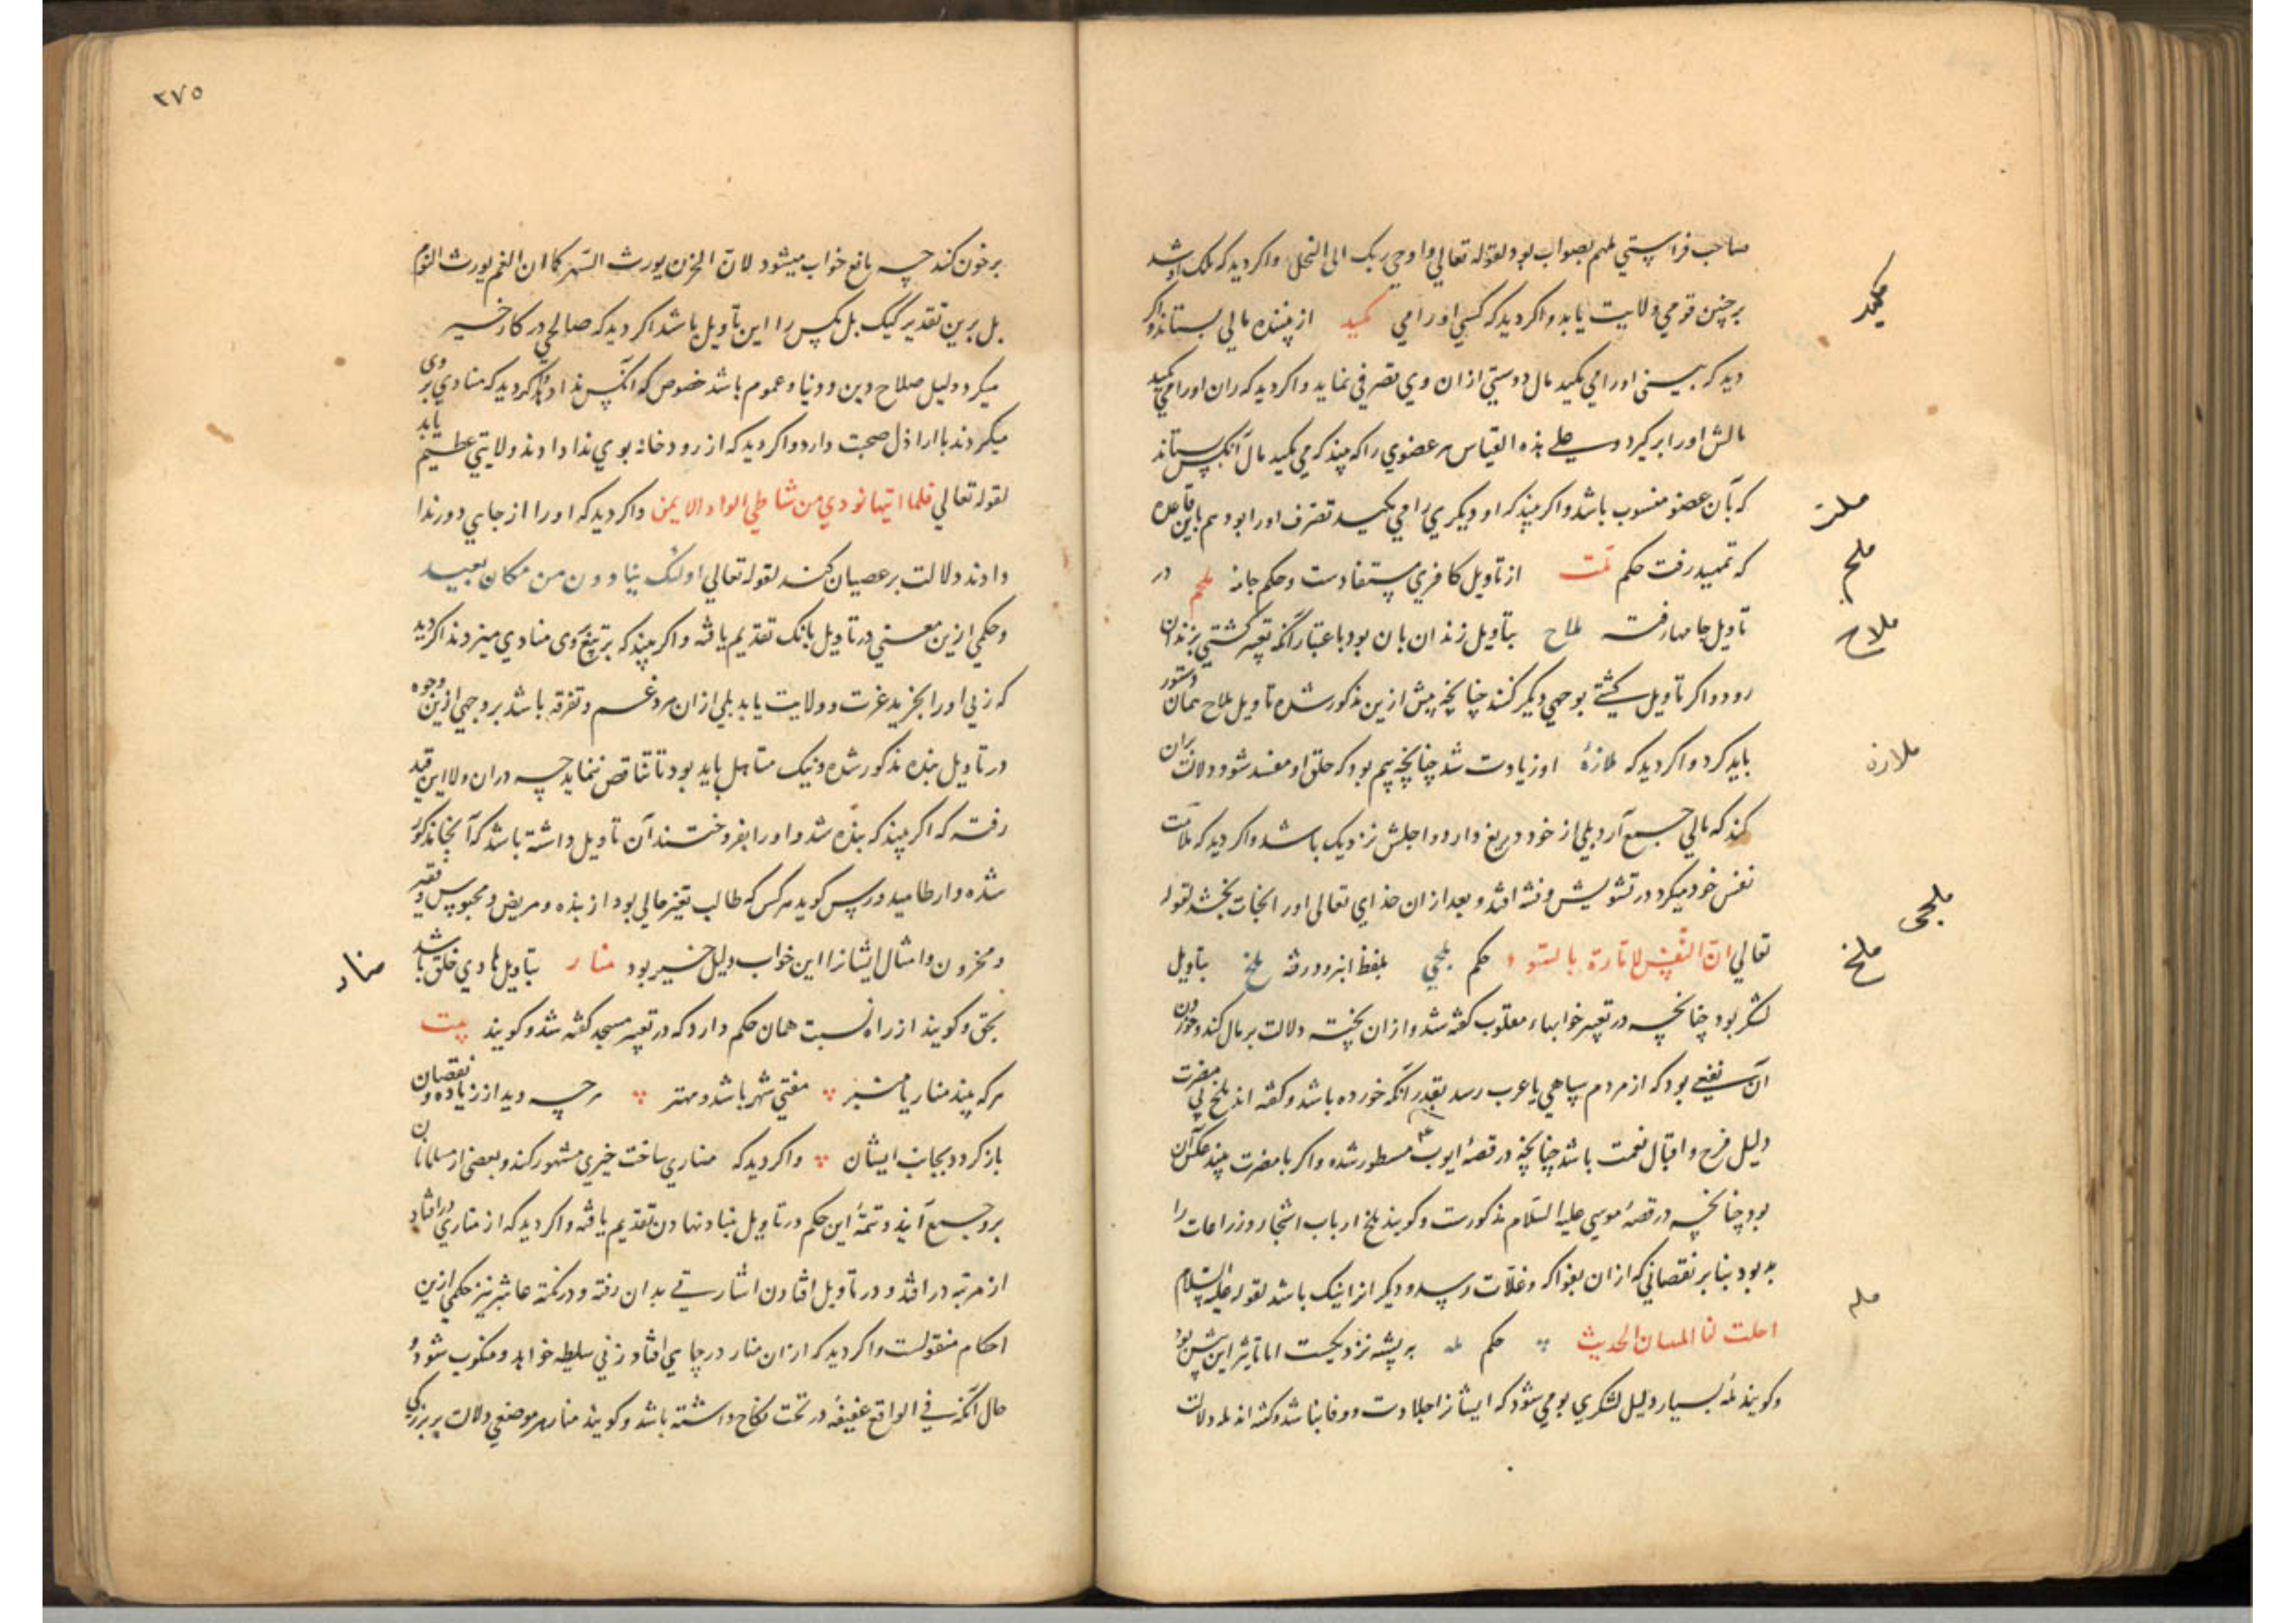 صاحب فراستی ملهم بصواب بود لقوله تعالی و اوحی ربک الی النحل و اکر دید که ملک او شد
بر چنین قومی ولایت یابد و اکر دید که کسی اورا می مکید از منسده مالی بستاند و اکر
مکید
دید که بینی اورا می مکید مال دوستی ازان وی تصرفی نماید و اکر دید که ران اورا می مکید
مالش اورا برگیرد و علی هذه القیاس هر عضوی را که بیند که می مکید مال آنکس بستاند
که بآن عضو منسوب باشد و اکر بیند که او دیگری را می مکید تصرف اورا بود هم باین قاعده
ملت
که تمهید رفت حکم ملت از تاویل کافری مستفادست و حکم جامه ملحم در
ملحم
تاویل جامها رفته ملاح بتاویل زندان بان بود باعتبار آنکه تعبیر کشتی بزندان
ملاح
رود و اکر تاویل کشتی بوجهی دیگر کنند چنانچه پیش ازین مذکور شده تاویل ملاح همان دستور
باید کرد و اکر دید که ملازهٔ او زیادت شد چنانچه بیم بود که حلق او مفسد شود دلالت بران
ملازه
کند که مالی جمع آرد بلی از خود دریغ دارد و اجلش نزدیک باشد و اکر دید که ملامت
نفس خود میکرد در تشویش و فتنه افتد و بعد ازان خدای تعالی اورا نجات بخشد لقوله
ملحی
تعالی ان النفس لامارة بالسوء حکم ملحی بلفظ ابزر و رفته ملخ بتاویل
ملخ
لشکر بود چنانچه در تعبیر خوابهاء مقلوب کفته شد و ازان پخته دلالت بر مال کند و خوردن
آن نفعی بود که از مردم سپاهی یا عرب رسد بقدر آنکه خورده باشد و کفته اند ملخ بی مضرت
دلیل فرح و اقبال نعمت باشد چنانچه در قصهٔ ایوب ع م مسطور شده و اکر با مضرت بیند عکس آن
بود چنانچه در قصهٔ موسی علیه السلام مذکورست و کویند ملخ ارباب اشجار و زراعات را
بد بود بنابر نقصانی که ازان بفواکه و غلات رسد و دیگر انرا نیک باشد لقوله علیه السلام
احلت لنا المیتتان الحدیث حکم مله به پشه نزدیکست اما تاثیر این بیش بود
مله
و کویند ملهٔ بسیار دلیل لشکری بومی شود که ایشانرا جلادت و وفا نباشد و کفته اند مله دلالت
٣٧٥
بر خون کند چه مانع خواب میشود لان الحزن یورث السهر کما ان الغم یورث النوم
بل برین تقدیر کیک بل مکس را این تاویل باشد اکر دید که صالحی در کار خیر
میکرد دلیل صلاح دین و دنیا و عموم باشد خصوص که آنکس ندا داد و اکر دید که منادی بر وی
میکردند با اراذل صحبت دارد و اکر دید که از رودخانه بوی ندا دادند ولایتی عظیم یابد
لقوله تعالی فلما اتیها نودی من شاطی الواد الایمن و اکر دید که اورا از جایی دور ندا
دادند دلالت بر عصیان کند لقوله تعالی اولئک ینادون من مکان بعید
و حکمی ازین معنی در تاویل بانک تقدیم یافته و اکر بیند که بر تیغ وی منادی میزدند اکر دید
که زنی اورا بخرید عزت و ولایت یابد بلی ازان مرد غم و تفرقه باشد بر وجهی ازین وجوه
در تاویل بنده مذکور شده و نیک متامل باید بود تا تناقص ننماید چه دران ولا این قید
رفته که اکر بیند که بنده شد و اورا بفروختند آن تاویل داشته باشد که آنجا مذکور
شده و ارطامیدورس کوید هر کس که طالب تغیر حالی بود از بنده و مریض و محبوس و فقیر
و محزون و امثال ایشانرا این خواب دلیل خیر بود منار بتاویل هادی خلق باشد
منار
بحق و کویند از راه نسبت همان حکم دارد که در تعبیر مسجد کفته شد و کویند بیت
هر که بیند منار یا منبر مفتی شهر باشد و مهتر هر چه دید از زیاده و نقصان
باز کردد بجانب ایشان و اکر دید که مناری ساخت خیری مشهور کند و بعضی از مسلمانان
بر وی جمع آیند و تتمهٔ این حکم در تاویل بنیاد نهادن تقدیم یافته و اکر دید که از مناری در افتاد
از مرتبه در افتد و در تاویل افتادن اشارتی بدان رفته و در نکته عاشر نیز حکمی ازین
احکام منقولست و اکر دید که ازان منار در چاهی افتاد زنی سلیطه خواهد و منکوب شود و
حال آنکه فی الواقع عفیفهٔ در تحت نکاح داشته باشد و کویند منار هر موضعی دلالت بر بزرکی